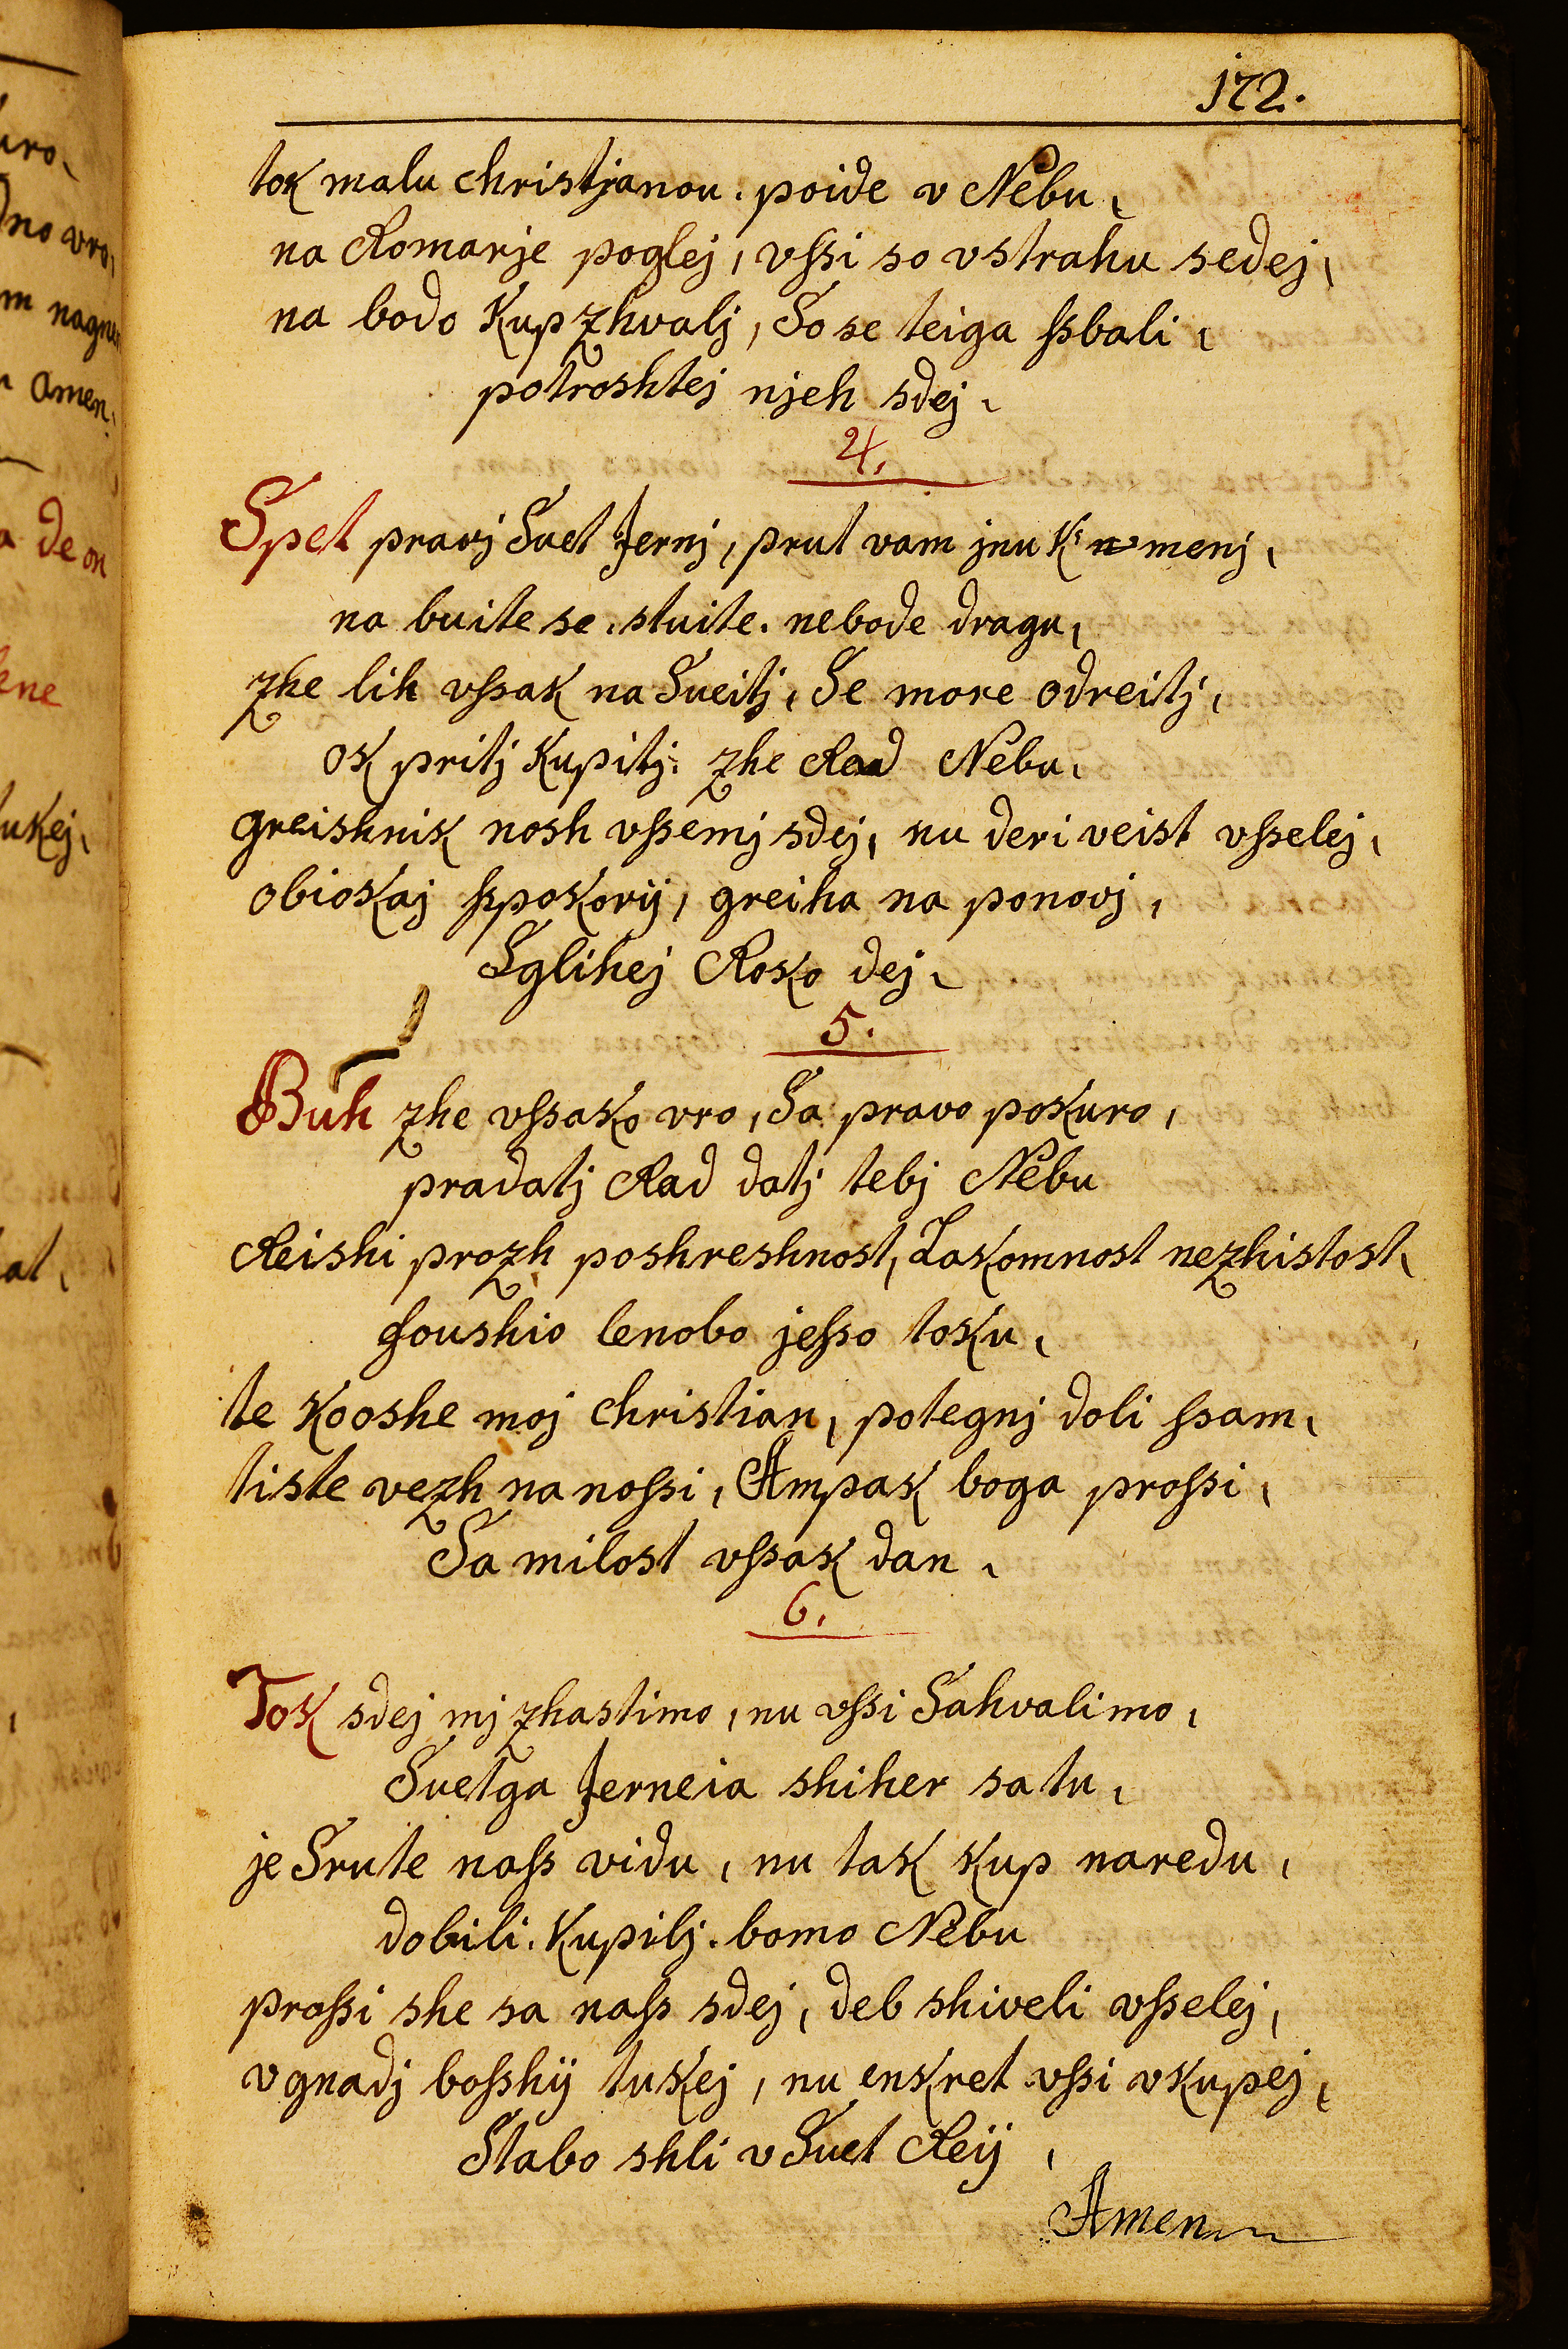 172.
tok malu christjanou. poide v Nebu,
na Romarje poglej, vſsi so vstrahu sedej,
na bodo kupzhvalj, So se teiga ſsbali,
potroshtej njeh sdej,
4.
Spet pravj Suet Jernj, prut vam jnu k' menj,
na buite se, stuite. nebode dragu,
zhe lih vſsak na Sueitj, Se more odreitj,
ok pritj kupitj. zhe Rad Nebu.
greishnik nosh vſsemj sdej, nu deri veist vſselej,
obiokaj ſspokorij, greiha na ponovj,
Sglihej Roko dej,
5.
Buh zhe vſsako vro, Sa pravo pokuro,
pradatj Rad datj tebj Nebu
Reishi prozh poshreshnost, Lakomnost nezhistost,
foushio lenobo jeſso toku,
te kooshe moj christian, potegnj doli ſsam,
tiste vezh na noſsi, Ampak boga proſsi,
Sa milost vſsak dan,
6.
Tok sdej mj zhastimo, nu vſsi Sahvalimo,
Suetga Jerneia shiher sa tu,
je Srute naſs vidu, nu tak kup naredu,
dobili. kupilj. bomo Nebu
proſsi she sa naſs sdej, deb shiveli vſselej,
v gnadj boſshij tukej, nu enkret vſsi vkupej,
Stabo shli v Suet Reij,
Amen